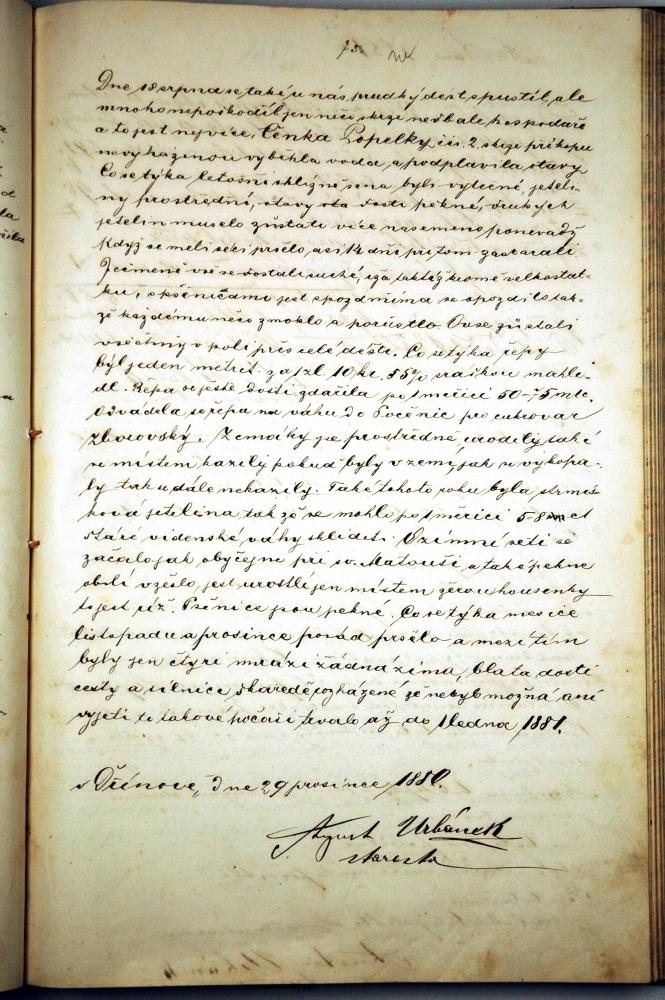 75.
Dne 18 srpna se také u nás prudký dešť spustil, ale
mnoho nepoškodil jen něco skrze nedbalé hospodaře
a to jest nejvíce, Čěnka Popelky čís. 2. skrze příkopu
nevyházenou vyběhla voda, a podplavila otavy
Co se týka letošní sklizně sena byli výtečné, jeteli-
ny prostřední, otavy sta dosti pěkné, druhých
jetelin muselo zůstati více na semeno poněvadž
když se měli séci pršelo, asi 14 dní přitom zastarali.
Ječmeně vše se dostali suché, též kromě velkostat-
ku, s pšenicami jest se opozdilo tak-
že každému něco zmoklo a porůstlo. Ovse, zůstali
všechny v poli přes celé deště. Co se týka řepy
byl jeden metrct. za 1 zl. 10 kr. s 5% sraškou
Řepa se ještě dosti zdařila po měřici 50-75 mtc.
Odvádela se řepa na váhu do Počenic pro cukrovar
zborovský. Zemáky jse prostředně urodily také
se místem kazily pokud byly v zemi jak se vykopa-
ly tak u dále nekazily. Také tohoto roku byla strniš-
ková jetelina tak že se mohlo po měřici 5-8 mct
staré videnské váhy skliditi. Ozimní setí se
začalo jak obyčejne při sv. Matouši a také pěkne
obilí vzešlo, jest urostlí jen místem žerou housenky
to jest réž. Pšenice jsou pěkné. Co se týka mesíce
listopadu a prosince porád pršelo a mezi tím
byly jen čtyri mrázi žádná zima, blata dosti
cesty a silnice skaredě rozházené že nebylo možná ani
vyjeti to takové počasí trvalo až do 1 ledna 1881.
v Dřínově, dne 29 prosince 1880.
August Urbánek
starosta